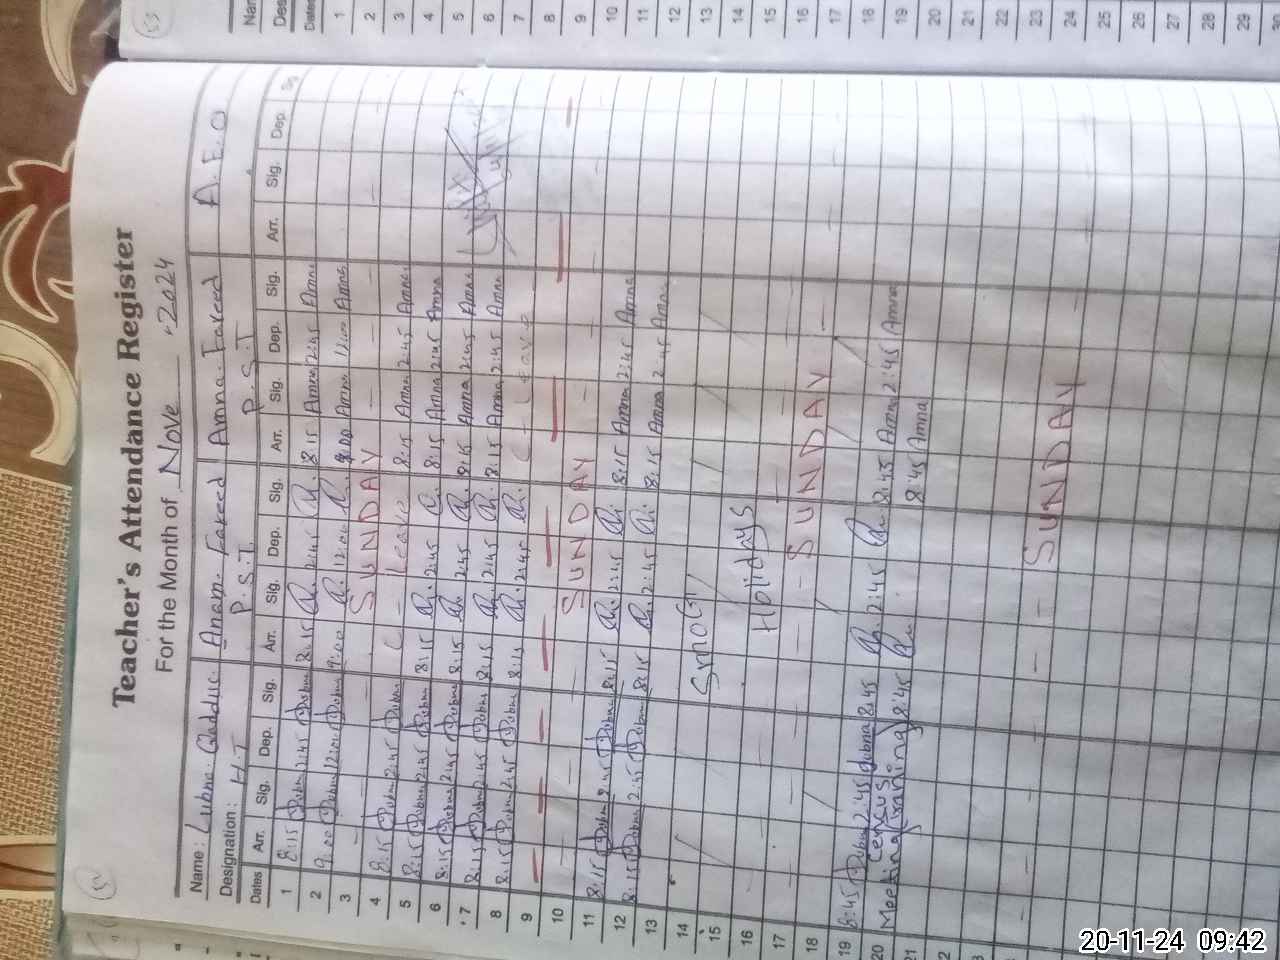 Teacher's Attendance Register
For the Month of Nove - 2024
Name: Lubna Qaddus Anam Fareed Amna Fareed A.E.O
Designation: H.T P.S.T P.S.T
Dates Arr. Sig. Dep. Sig. Arr. Sig. Dep. Sig. Arr. Sig. Dep. Sig. Arr. Sig. Dep.
1 8:15 Lubna 2:45 Lubna 8:15 2:45 8:15 Amna 2:45 Amna
2 9:00 Lubna 12:00 Lubna 9:00 12:00 9:00 Amna 12:00 Amna
3 SUNDAY
4 8:15 Lubna 2:45 Lubna C - Leave 8:15 Amna 2:45 Amna
5 8:15 Lubna 2:45 Lubna 8:15 2:45 8:15 Amna 2:45 Amna
6 8:15 Lubna 2:45 Lubna 8:15 2:45 8:15 Amna 2:45 Amna
7 8:15 Lubna 2:45 Lubna 8:15 2:45 8:15 Amna 2:45 Amna
8 8:15 Lubna 2:45 Lubna 8:15 2:45 C - Leave
9
10 SUNDAY
11 8:15 Lubna 2:45 Lubna 8:15 2:45 8:15 Amna 2:45 Amna
12 8:15 Lubna 2:45 Lubna 8:15 2:45 8:15 Amna 2:45 Amna
13
14 Smog
15
16 Holidays
17 SUNDAY
18
19 8:45 Lubna 2:45 Lubna 8:45 2:45 8:45 Amna 2:45 Amna
20 Meeting Cencus Training 8:45 8:45 Amna
21
22
23
24 SUNDAY
Nam
Des
Dates
1
2
3
4
5
6
7
8
9
10
11
12
13
14
15
16
17
18
19
20
21
22
23
24
25
26
27
28
29
30
20-11-24 09:42